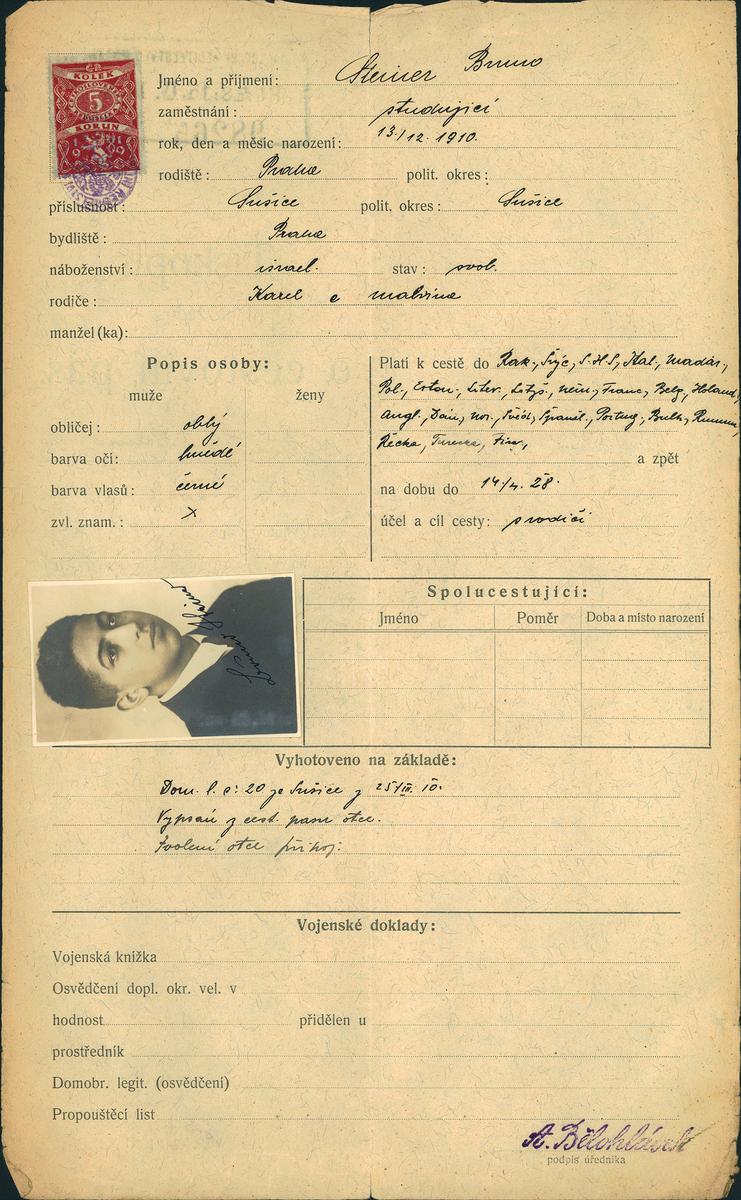 KOLEK
5
KORUN
1919
Jméno a příjmení: Steiner Bruno
zaměstnání: studující
rok, den a měsíc narození: 13./12. 1910.
rodiště: Praha polit. okres:
příslušnost: Sušice polit. okres: Sušice
bydliště: Praha
náboženství: israel. stav: svob.
rodiče: Karel a Malvina
manžel (ka):
Popis osoby:
muže ženy
obličej: oblý
barva očí: hnědé
barva vlasů: černé
zvl. znam.: x
Platí k cestě do Rak., Švýc., S.H.S., Ital., Maďar.,
Pol., Eston., Litev., Lotyš., Něm., Franc., Belg., Holand.,
Angl., Dán., Nor., Švéd., Španěl., Portug., Bulh., Rumun.,
Řecka, Turecka, Fin.,
a zpět
na dobu do 14./4. 28.
účel a cíl cesty: s rodiči
Bruno Steiner
Spolucestující:
Jméno Poměr Doba a místo narození
Vyhotoveno na základě:
Dom. l. č: 20 ze Sušice z 25/III. 10.
Vypsán z cest. pasu otce.
Svolení otce připoj.
Vojenské doklady:
Vojenská knížka
Osvědčení dopl. okr. vel. v
hodnost přidělen u
prostředník
Domobr. legit. (osvědčení)
Propouštěcí list
A. Bělohlávek
podpis úředníka